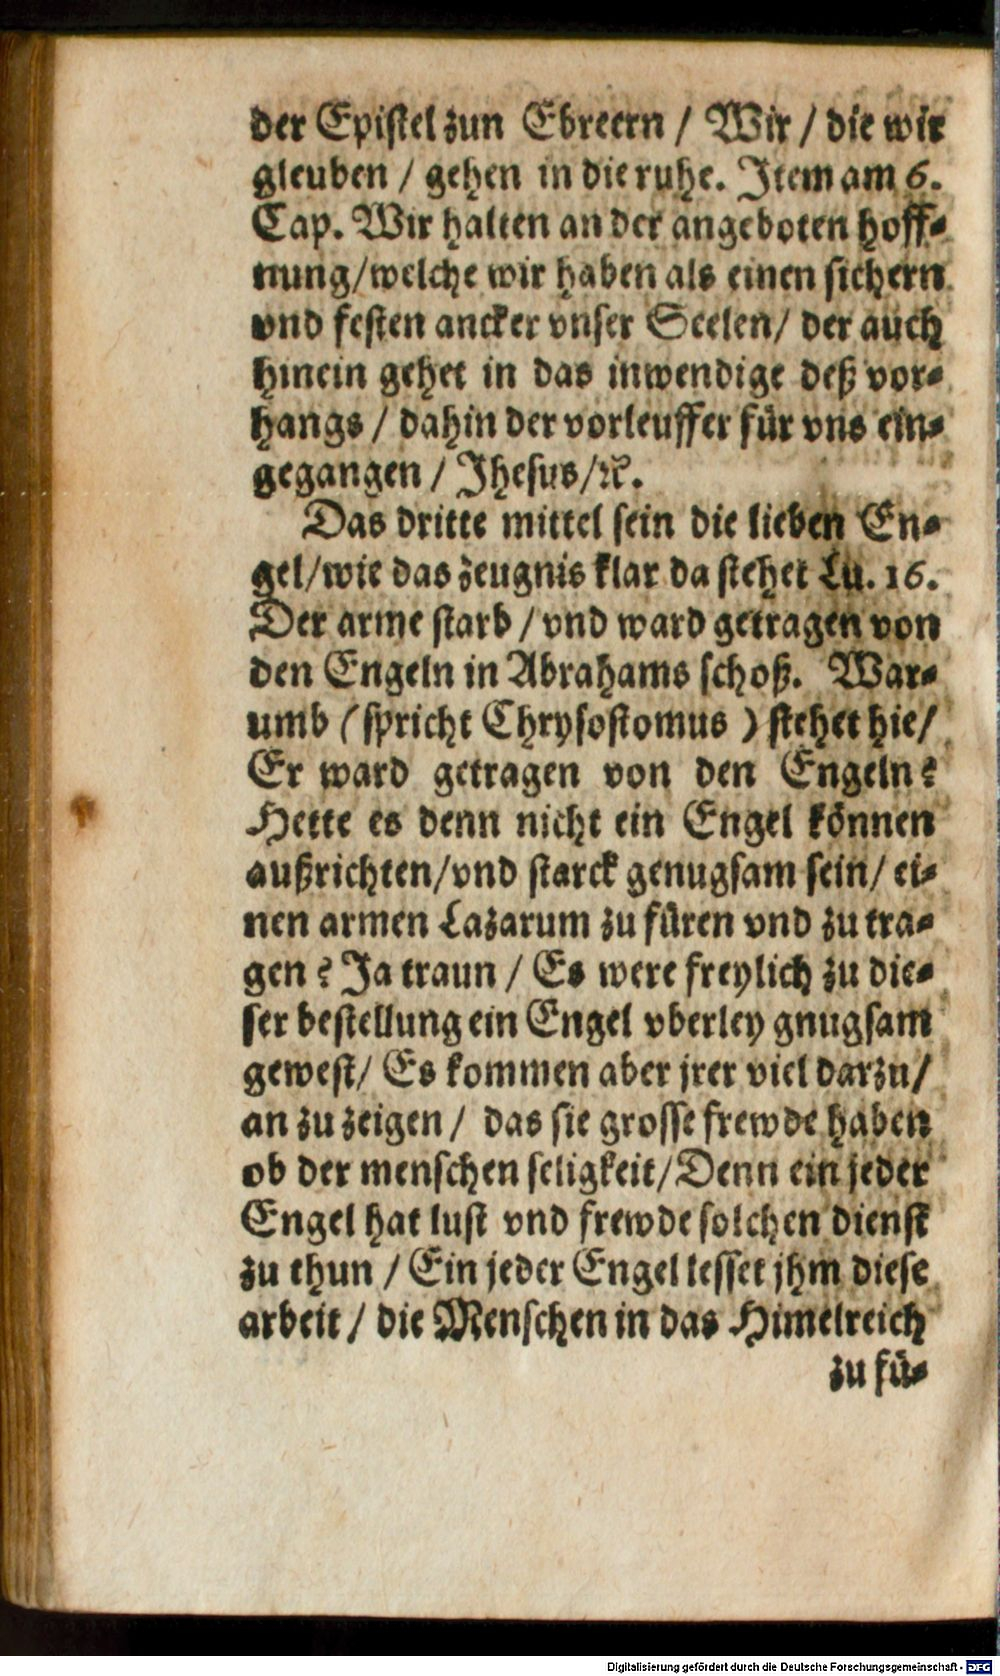 der Epistel zun Ebreern / Wir / die wir
gleuben / gehen in die ruhe. Item am 6.
Cap. Wir halten an der angeboten hoff⸗
nung/welche wir haben als einen sichern
vnd festen ancker vnser Seelen/ der auch
hinein gehet in das inwendige deß vor⸗
hangs / dahin der vorleuffer für vns ein⸗
gegangen / Jhesus/ꝛc.
Das dritte mittel sein die lieben En⸗
gel/wie das zeugnis klar da stehet Lu. 16.
Der arme starb / vnd ward getragen von
den Engeln in Abrahams schoß. War⸗
umb (spricht Chrysostomus ) stehet hie/
Er ward getragen von den Engeln?
Hette es denn nicht ein Engel können
außrichten/vnd starck genugsam sein/ ei⸗
nen armen Lazarum zu füren vnd zu tra⸗
gen? Ja traun / Es were freylich zu die⸗
ser bestellung ein Engel vberley gnugsam
gewest/ Es kommen aber jrer viel darzu/
an zu zeigen / das sie grosse frewde haben
ob der menschen seligkeit/Denn ein jeder
Engel hat lust vnd frewde solchen dienst
zu thun / Ein jeder Engel lesset jhm diese
arbeit / die Menschen in das Himelreich
zu fü⸗
Digitalisierung gefördert durch die Deutsche Forschungsgemeinschaft - DFG